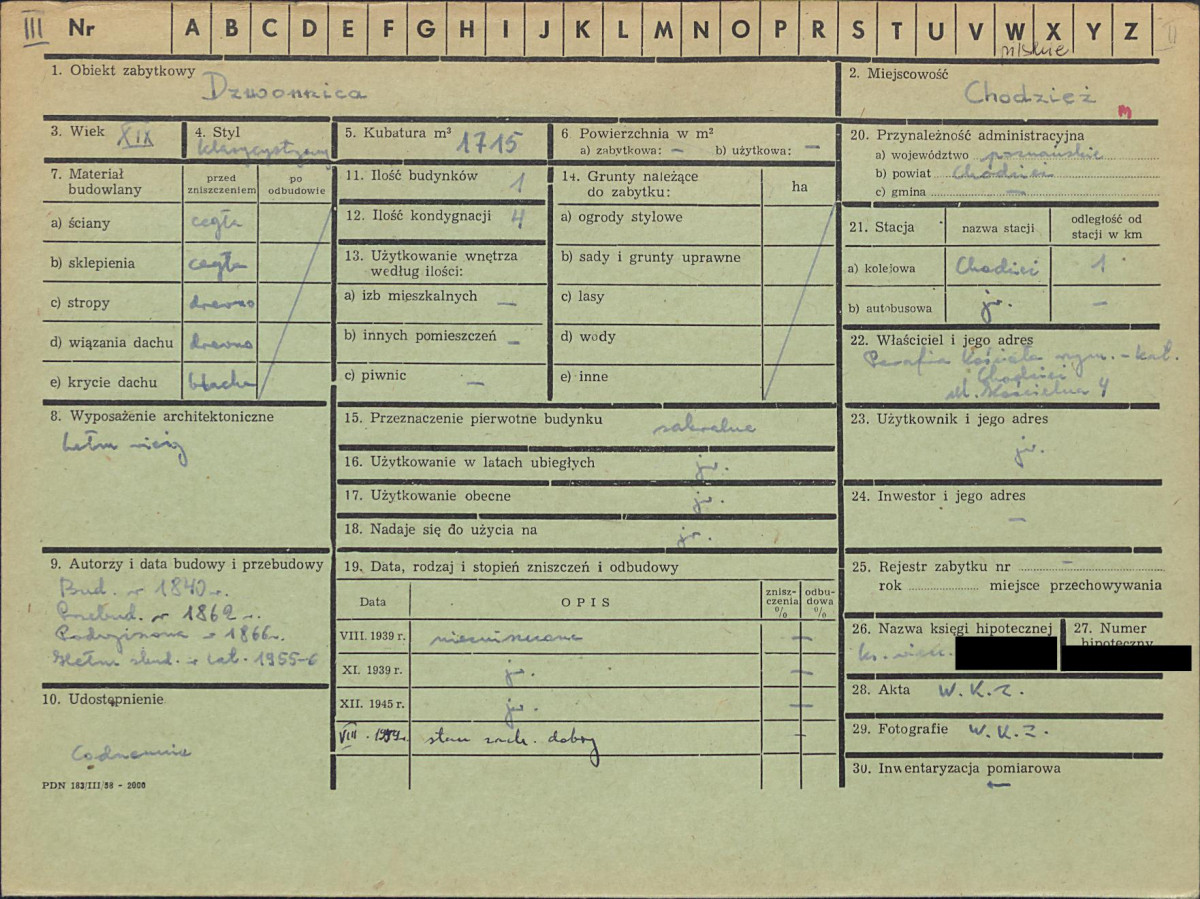 III Nr A B C D E F G H I J K L M N O P R S T U V W X Y Z II
pilskie
1. Obiekt zabytkowy Dzwonnica
2. Miejscowość Chodzież
m
3. Wiek XIX
4. Styl klasycystyczny
5. Kubatura m³ 1715
6 Powierzchnia w m²
a) zabytkowa: — b) użytkowa: —
7. Materiał budowlany
przed zniszczeniem
po odbudowie
a) ściany cegła
b) sklepienia cegła
c) stropy drewno
d) wiązania dachu drewno
e) krycie dachu blacha
8. Wyposażenie architektoniczne
hełm
9. Autorzy i data budowy i przebudowy
Bud. w 1840 r.
Przebud. w 1862 r.
w 1866 r.
Hełm w lat. 1955-6
10. Udostępnienie
Codziennie
PDN 183/III/58 - 2000
11. Ilość budynków 1
12. Ilość kondygnacji 4
13. Użytkowanie wnętrza według ilości:
a) izb mieszkalnych —
b) innych pomieszczeń —
c) piwnic —
14. Grunty należące do zabytku:
ha
a) ogrody stylowe
b) sady i grunty uprawne
c) lasy
d) wody
e) inne
15. Przeznaczenie pierwotne budynku sakralne
16. Użytkowanie w latach ubiegłych jw.
17. Użytkowanie obecne jw.
18. Nadaje się do użycia na jw.
19. Data, rodzaj i stopień zniszczeń i odbudowy
Data
OPIS
znisz-
czenia
%
odbu-
dowa
%
VIII. 1939 r. niezniszczona —
XI. 1939 r. jw. —
XII. 1945 r. jw. —
VIII. 1959 r. stan zach. dobry -
20. Przynależność administracyjna
a) województwo poznańskie
b) powiat Chodzież
c) gmina —
21. Stacja
nazwa stacji
odległość od stacji w km
a) kolejowa Chodzież 1
b) autobusowa jw. —
22. Właściciel i jego adres
Parafia Kościoła rzym.-kat.
Chodzież
ul. Kościelna 4
23. Użytkownik i jego adres
jw.
24. Inwestor i jego adres
—
25. Rejestr zabytku nr —
rok miejsce przechowywania
26. Nazwa księgi hipotecznej
ks. wiecz.
27. Numer
hipoteczny
28. Akta W.K.Z.
29. Fotografie W.K.Z.
30. Inwentaryzacja pomiarowa
—